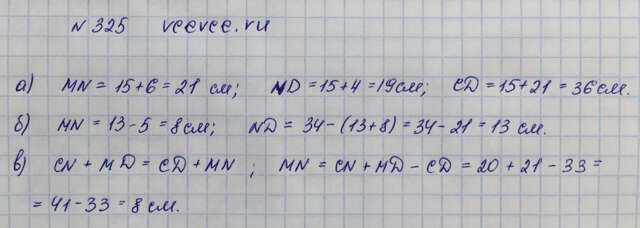 № 325 veevee.ru
а) MN = 15+6 = 21 см; ND = 15+4 = 19 см; CD = 15+21 = 36 см.
б) MN = 13-5 = 8 см; ND = 34-(13+8) = 34-21 = 13 см.
в) CN + MD = CD + MN ; MN = CN + MD - CD = 20 + 21 - 33 =
= 41-33 = 8 см.